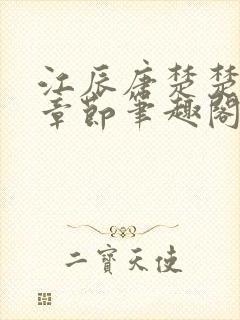 江辰唐楚楚
章節筆趣閣
二寶天使